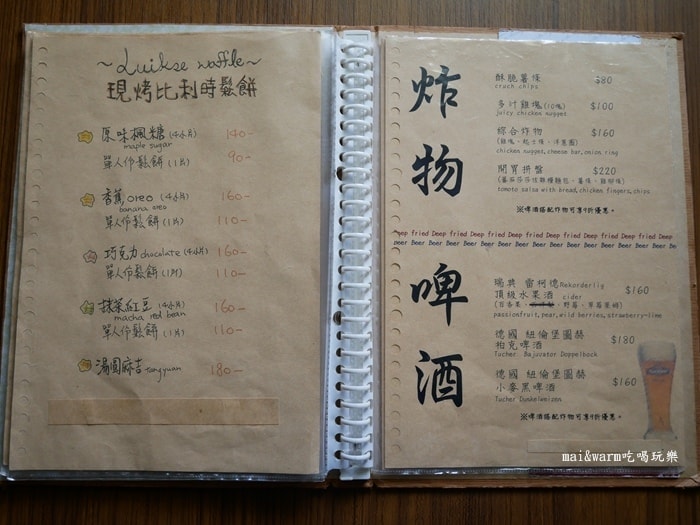 ~Luikse waffle~
現烤比利時鬆餅
原味楓糖(4小片) 140-
maple sugar
單人份鬆餅(1片) 90-
香蕉oreo(4小片) 160-
banana oreo
單人份鬆餅(1片) 110-
巧克力chocolate(4小片) 160-
單人份鬆餅(1片) 110-
抹茶紅豆(4小片) 160-
macha red bean
單人份鬆餅(1片) 110-
湯圓麻吉tangyuan 180-
炸物
酥脆薯條 $80
cruch chips
多汁雞塊(10塊) $100
juicy chicken nuppet
綜合炸物 $160
(雞塊、起士條、洋蔥圈)
chicken nuppet,cheese bar,onion ring
開胃拼盤 $220
tomato salsa with bread,chicken fingers,chips
※啤酒搭配炸物可享9折優惠。
Deep fried Deep fried Deep fried Deep fried Deep fried Deep fried Deep
Beer Beer Beer Beer Beer Beer Beer Beer Beer Beer Beer Beer Beer Beer
啤酒
瑞典 雷柯德Rekorderlig
頂級水果酒 cider $160
passionfruit,pear,wild berries,strawberry-lime
德國 紐倫堡圖赫
柏克啤酒 $180
Tucher Bajuvator Doppelbock
德國 紐倫堡圖赫
小麥黑啤酒 $160
Tucher Dunkelweizen
※啤酒搭配炸物可享9折優惠。
mai&warm吃喝玩樂